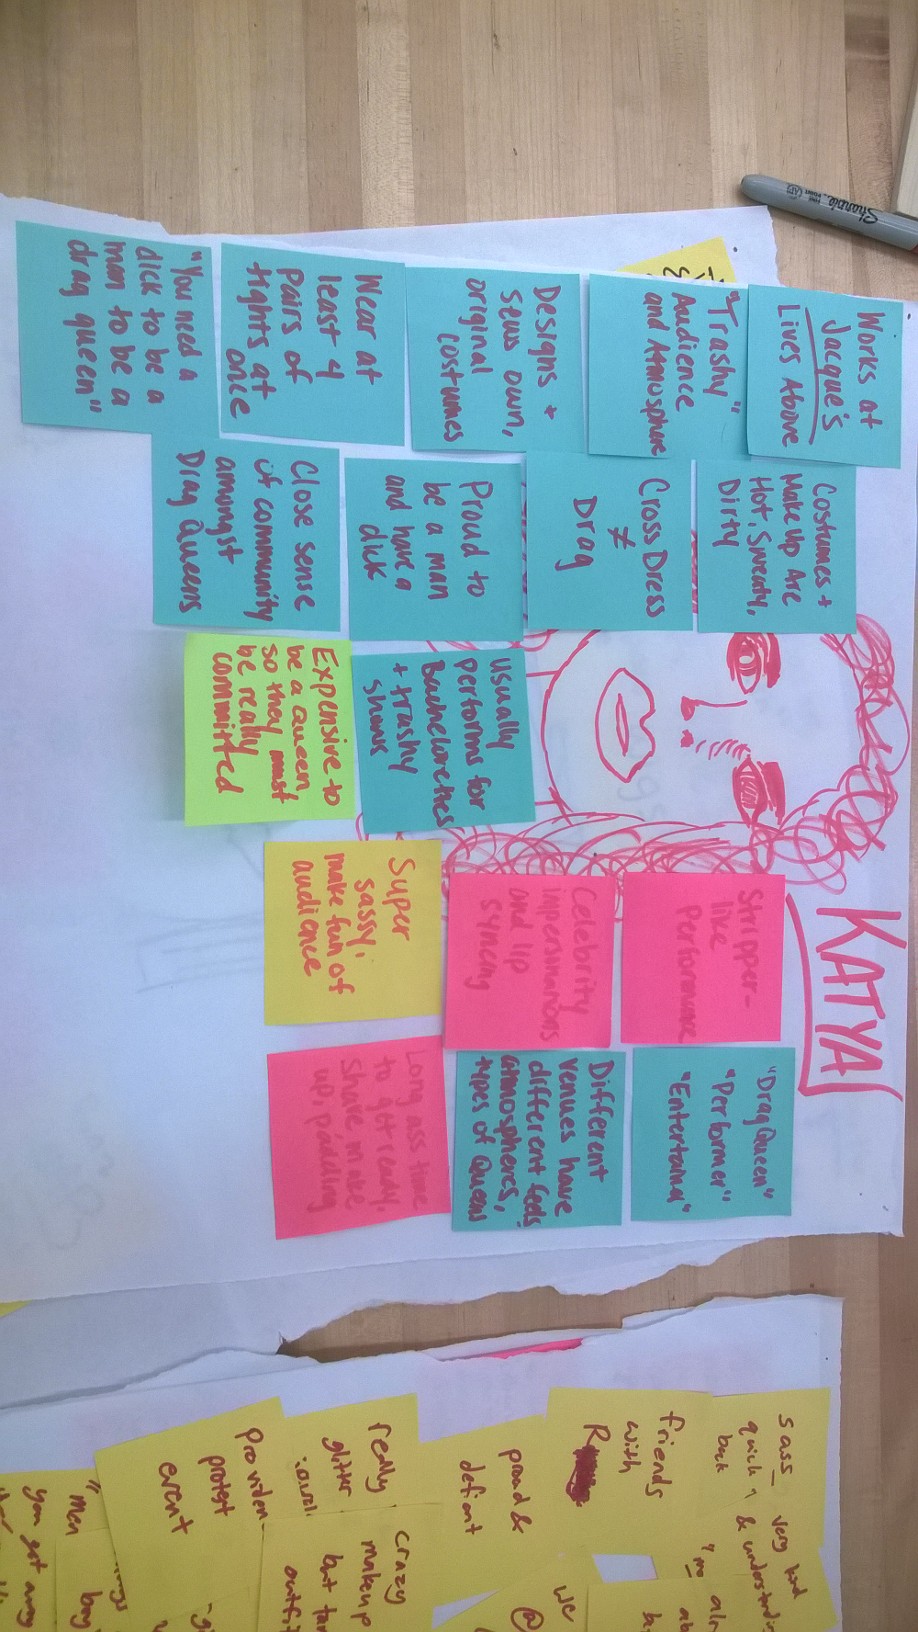 Sharpie
KATYA
Works at
Jacque's
Lives Above
"Trashy"
Audience
and Atmosphere
Designs +
sews own,
original
costumes
Wear at
least 4
pairs of
tights at
once
"You need a
dick to be a
man to be a
drag queen"
Costumes +
Make Up Are
Hot, Sweaty,
Dirty
Cross Dress
≠
Drag
Proud to
be a man
and have a
dick
Close sense
of community
amongst
Drag Queens
usually
performs for
Bachelorettes
+ trashy
shows
Expensive to
be a queen
so they must
be really
committed
Stripper-
like
Performance
Celebrity
impersonations
and lip
syncing
Super
sassy,
make fun of
audience
"Drag Queen"
"Performer"
"Entertainer"
Different
venues have
different feels,
atmospheres,
types of Queens
Long ass time
to get ready.
Shave, make
up, padding
sass
quick
back
friends
with
R
proud &
defiant
really
glitter
Providen
protest
event
very kind
& understandin
we
@
crazy
makeup
but
outf
"men
you got any
bag